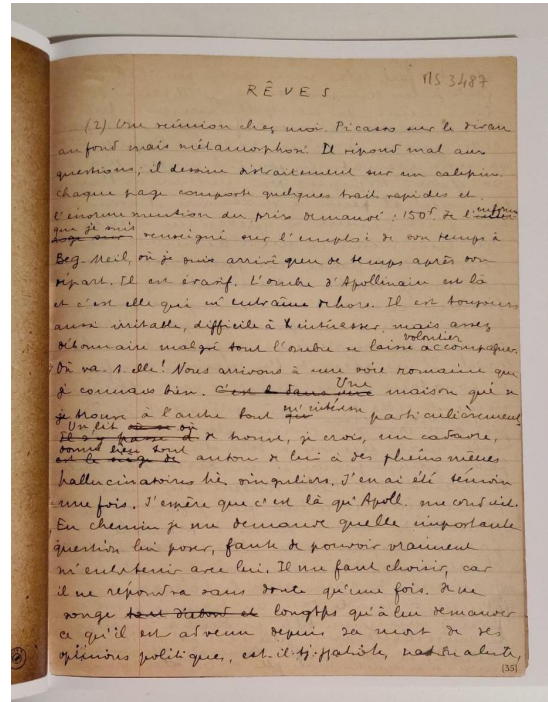 MS 3487
RÊVES
(2) Une réunion chez moi. Picasso sur le divan
au fond mais métamorphosé. Il répond mal aux
questions ; il dessine distraitement sur un calepin.
Chaque page comporte quelques traits rapides et
l'énorme mention du prix demandé : 150f. Je l'informe
que je suis
renseigné sur l'emploi de son temps à
Beg-Meil, où je suis arrivé peu de temps après son
départ. Il est évasif. L'ombre d'Apollinaire est là
et c'est elle qui m'entraîne dehors. Il est toujours
aussi irritable, difficile à intéresser, mais assez
volontiers
débonnaire malgré tout l'ombre se laisse accompagner.
Où va-t-elle ? Nous arrivons à une voie romaine que
Une
je connais bien. C'est dans une maison qui se
je trouve à l'autre bout qui m'intéresse particulièrement
Un lit où se
Il s'y passe de trouve, je crois, un cadavre,
donne lieu tout
est le siège de autour de lui à des phénomènes
hallucinatoires très singuliers. J'en ai été témoin
une fois. J'espère que c'est là qu'Apoll. me conduit.
En chemin je me demande quelle importante
question lui poser, faute de pouvoir vraiment
m'entretenir avec lui. Il me faut choisir, car
il ne répondra sans doute qu'une fois. Je ne
songe tout d'abord et longtps qu'à lui demander
ce qu'il est advenu depuis sa mort de ses
opinions politiques, est-il tj. patriote, nationaliste,
(35)